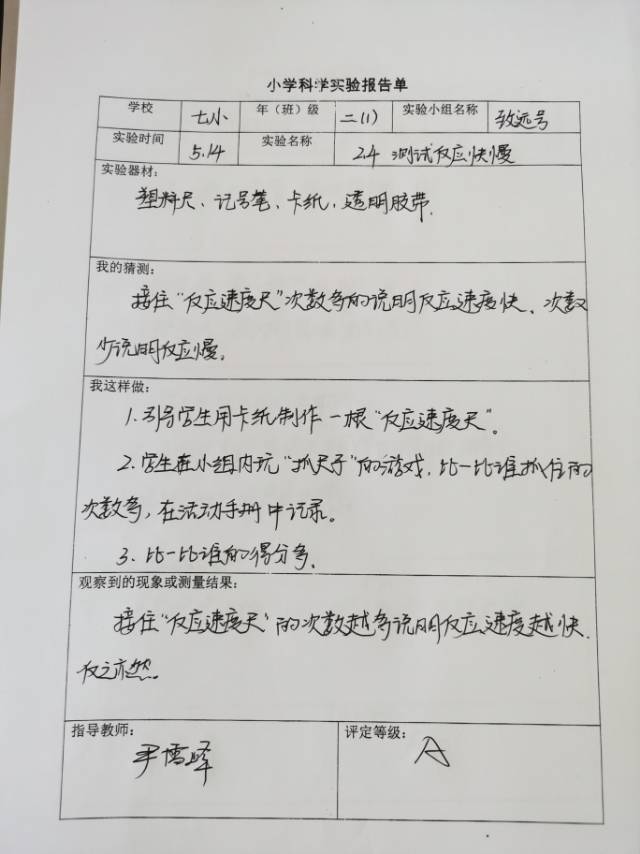 小学科学实验报告单
学校 七小 年（班）级 二（1） 实验小组名称 致远号
实验时间 5.14 实验名称 2.4 测试反应快慢
实验器材：
塑料尺、记号笔、卡纸、透明胶带.
我的猜测：
接住“反应速度尺”次数多的说明反应速度快、次数
少说明反应慢。
我这样做：
1.引导学生用卡纸制作一根“反应速度尺”。
2.学生在小组内玩“抓尺子”的游戏，比一比谁抓住的
次数多，在活动手册中记录。
3、比一比谁的得分多.
观察到的现象或测量结果：
接住“反应速度尺”的次数越多说明反应速度越快.
反之亦然。
指导教师： 评定等级：
尹雪峰 A